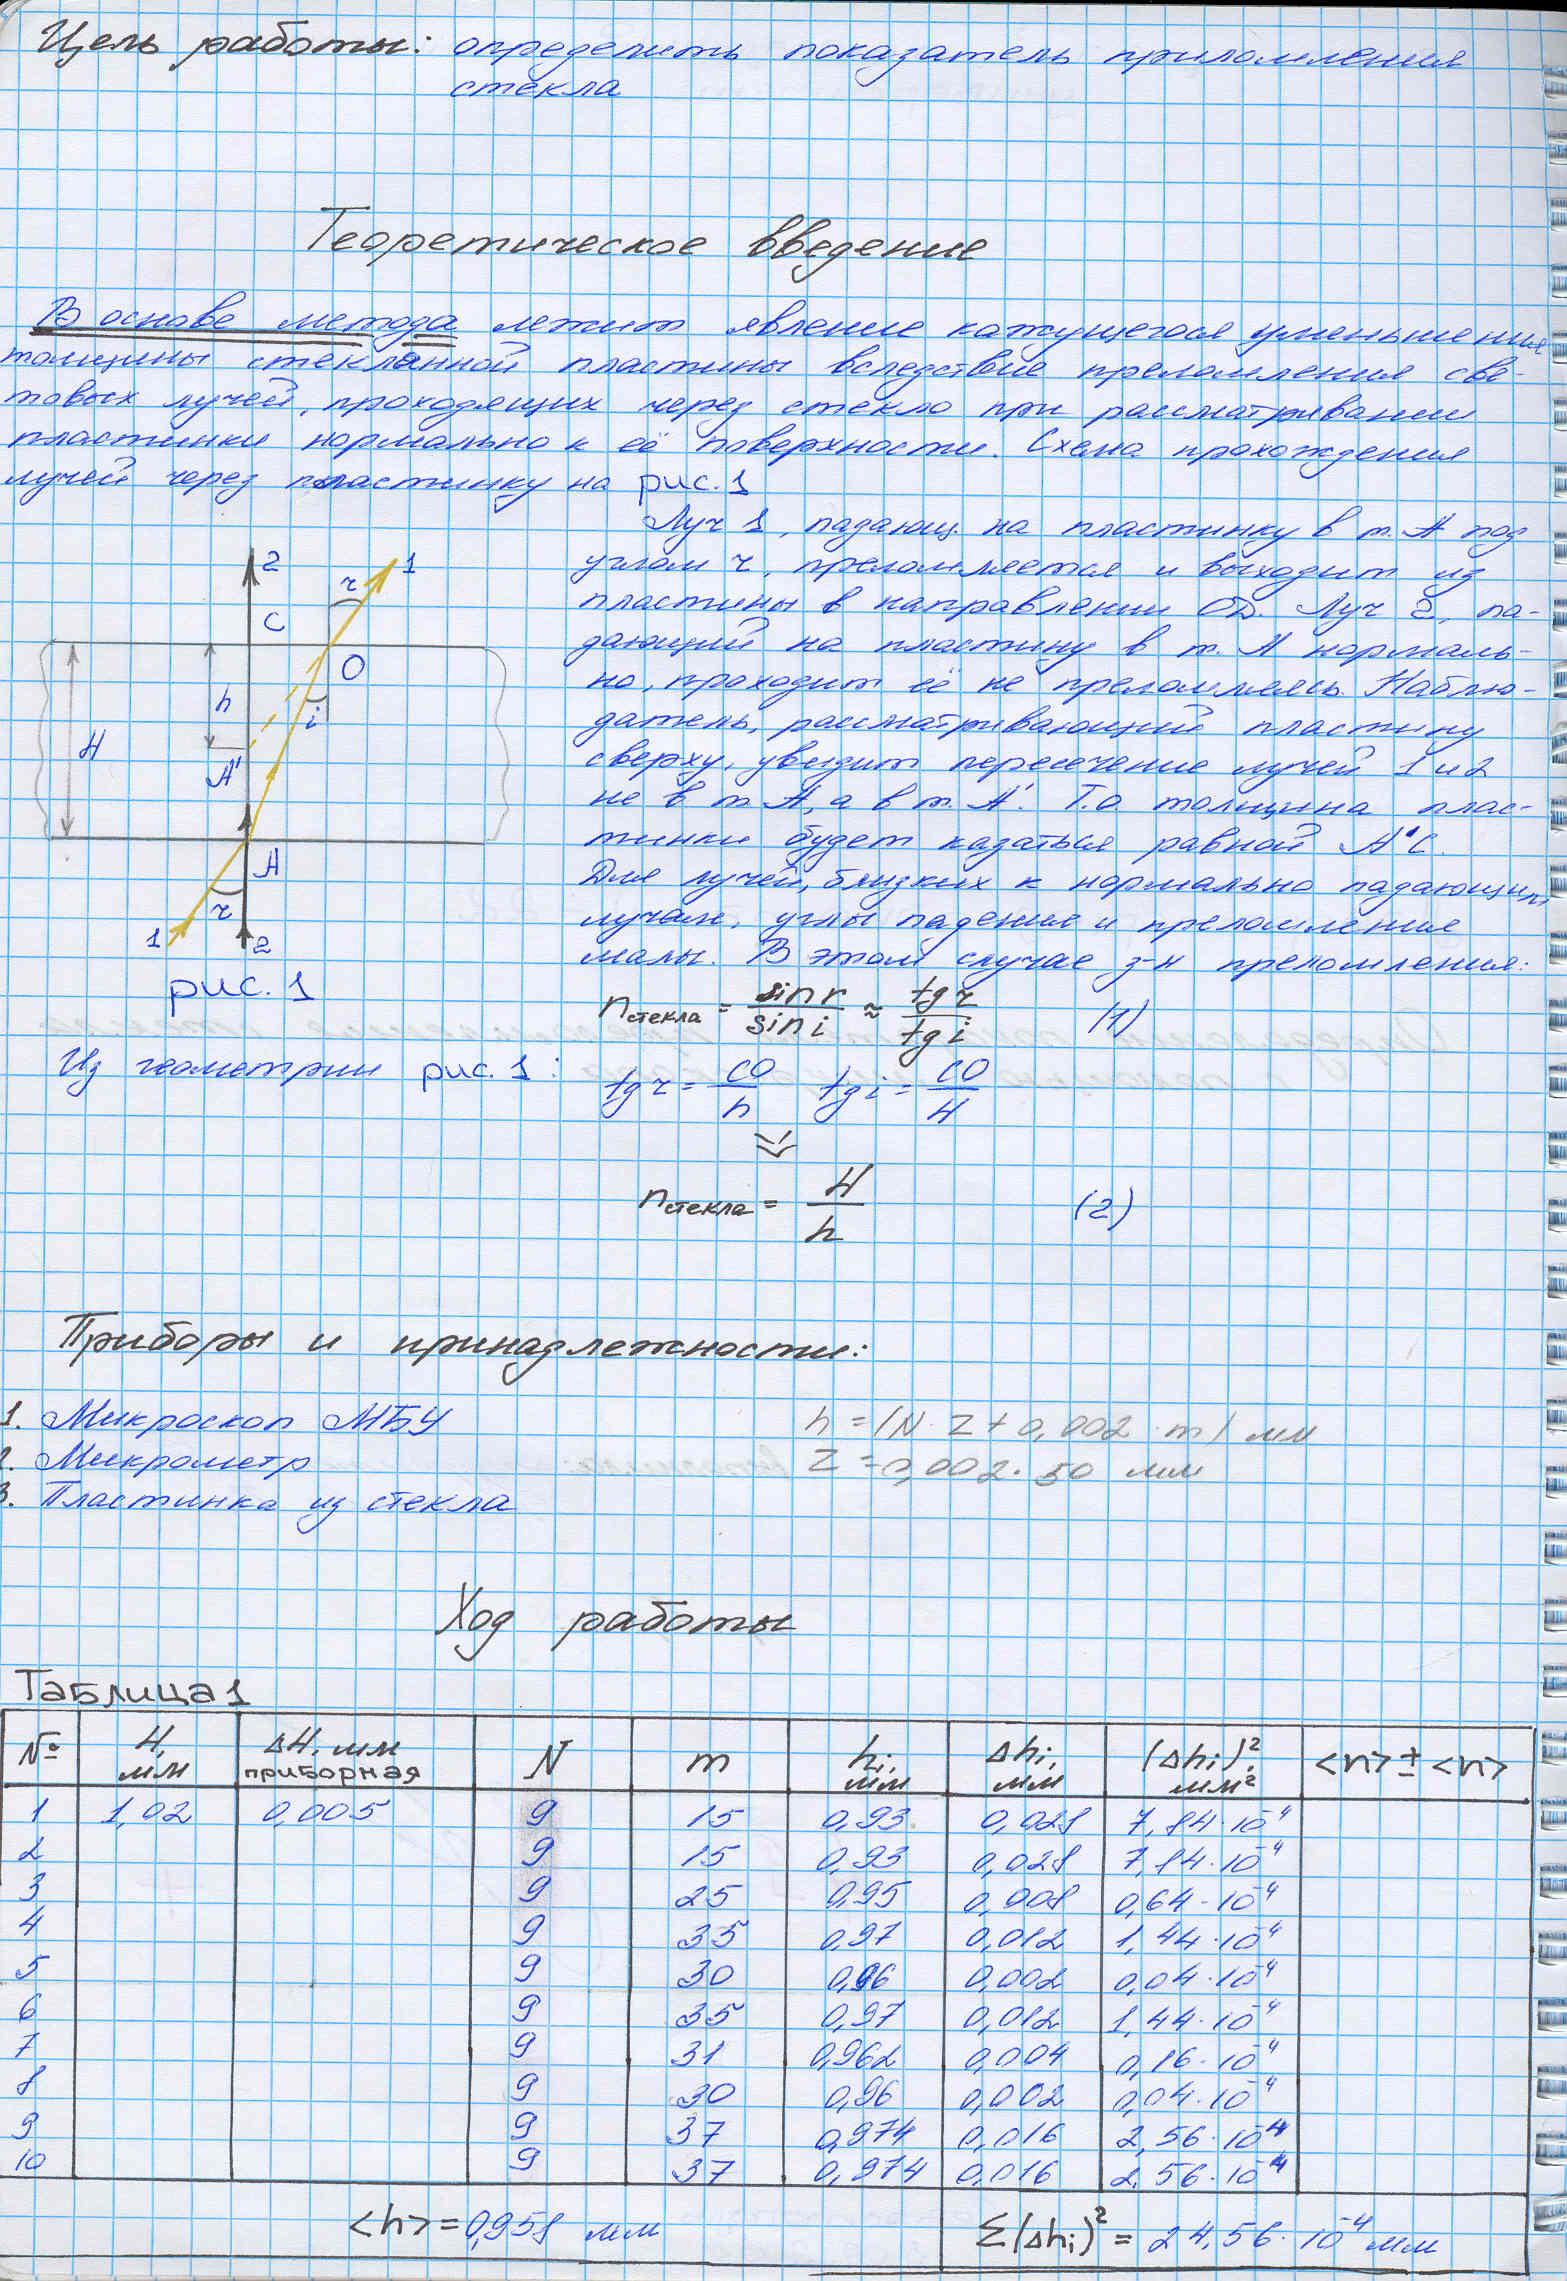 Цель работы: определить показатель приломления
стекла
Теоретическое введение
В основе метода лежит явление кажущегося уменьшения
толщины стеклянной пластины вследствие преломления све-
товых лучей, проходящих через стекло при рассматривании
пластинки нормально к её поверхности. Схема прохождения
лучей через пластинку на рис. 1
Луч 1, падающ. на пластинку в т. А под
углом r, преломляется и выходит из
пластины в направлении ОД. Луч 2, па-
дающий на пластину в т. А нормаль-
но, проходит её не преломляясь. Наблю-
датель, рассматривающий пластину
сверху, увидит пересечение лучей 1 и 2
не в т. А, а в т. А'. Т.о. толщина плас-
тинки будет казаться равной А'С.
Для лучей, близких к нормально падающим
лучам, углы падения и преломления
малы. В этом случае з-н преломления:
2
1
r
C
O
h
i
H
A'
A
r
1
2
рис. 1
nстекла = sin r / sin i ≈ tg r / tg i (1)
Из геометрии рис. 1: tg r = CO / h tg i = CO / H
⇓
nстекла = H / h (2)
Приборы и принадлежности:
1. Микроскоп МБУ
2. Микрометр
3. Пластинка из стекла
h = (N · Z + 0,002 · m) мм
Z = 0,002 · 50 мм
Ход работы
Таблица 1
№ H, мм ΔH, мм приборная N m hi, мм Δhi, мм (Δhi)², мм² <n> ± <n>
1 1,02 0,005 9 15 0,93 0,028 7,84·10⁻⁴
2 9 15 0,93 0,028 7,84·10⁻⁴
3 9 25 0,95 0,008 0,64·10⁻⁴
4 9 35 0,97 0,012 1,44·10⁻⁴
5 9 30 0,96 0,002 0,04·10⁻⁴
6 9 35 0,97 0,012 1,44·10⁻⁴
7 9 31 0,962 0,004 0,16·10⁻⁴
8 9 30 0,96 0,002 0,04·10⁻⁴
9 9 37 0,974 0,016 2,56·10⁻⁴
10 9 37 0,974 0,016 2,56·10⁻⁴
<h> = 0,958 мм Σ(Δhi)² = 24,56·10⁻⁴ мм